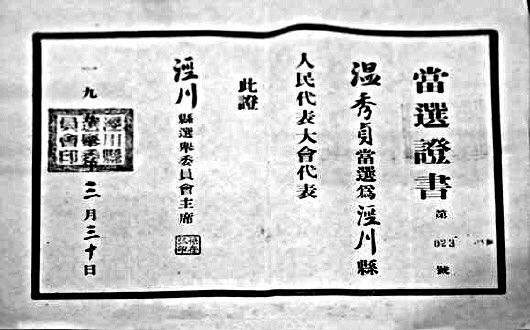 當選證書
第023號
温秀貞當選為涇川縣
人民代表大會代表
此證
涇川縣選舉委員會主席
一九
三月三十日
涇川縣
選舉委
員會印